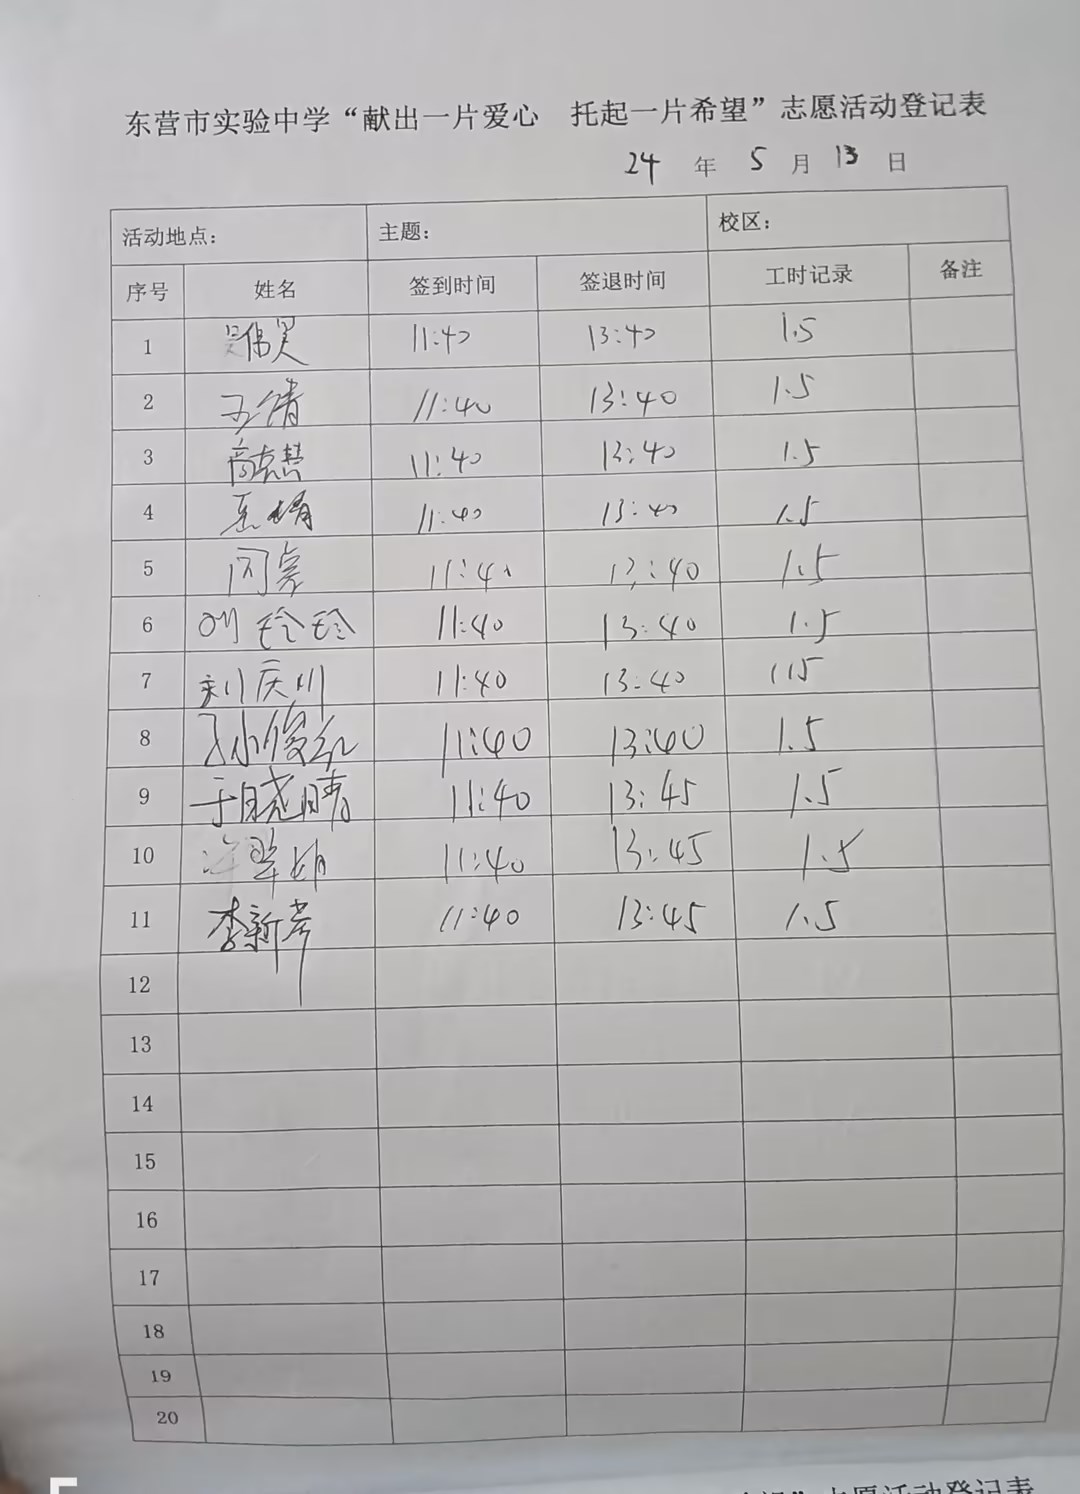 东营市实验中学“献出一片爱心 托起一片希望”志愿活动登记表
24 年 5 月 13 日
活动地点： 主题： 校区：
序号 姓名 签到时间 签退时间 工时记录 备注
1 11:40 13:40 1.5
2 王倩 11:40 13:40 1.5
3 11:40 13:40 1.5
4 11:40 13:40 1.5
5 闫 11:40 13:40 1.5
6 刘玲玲 11:40 13:40 1.5
7 刘庆川 11:40 13:40 1.5
8 孙俊红 11:40 13:40 1.5
9 于晓晴 11:40 13:45 1.5
10 许翠娟 11:40 13:45 1.5
11 李新芳 11:40 13:45 1.5
12
13
14
15
16
17
18
19
20
志愿活动登记表